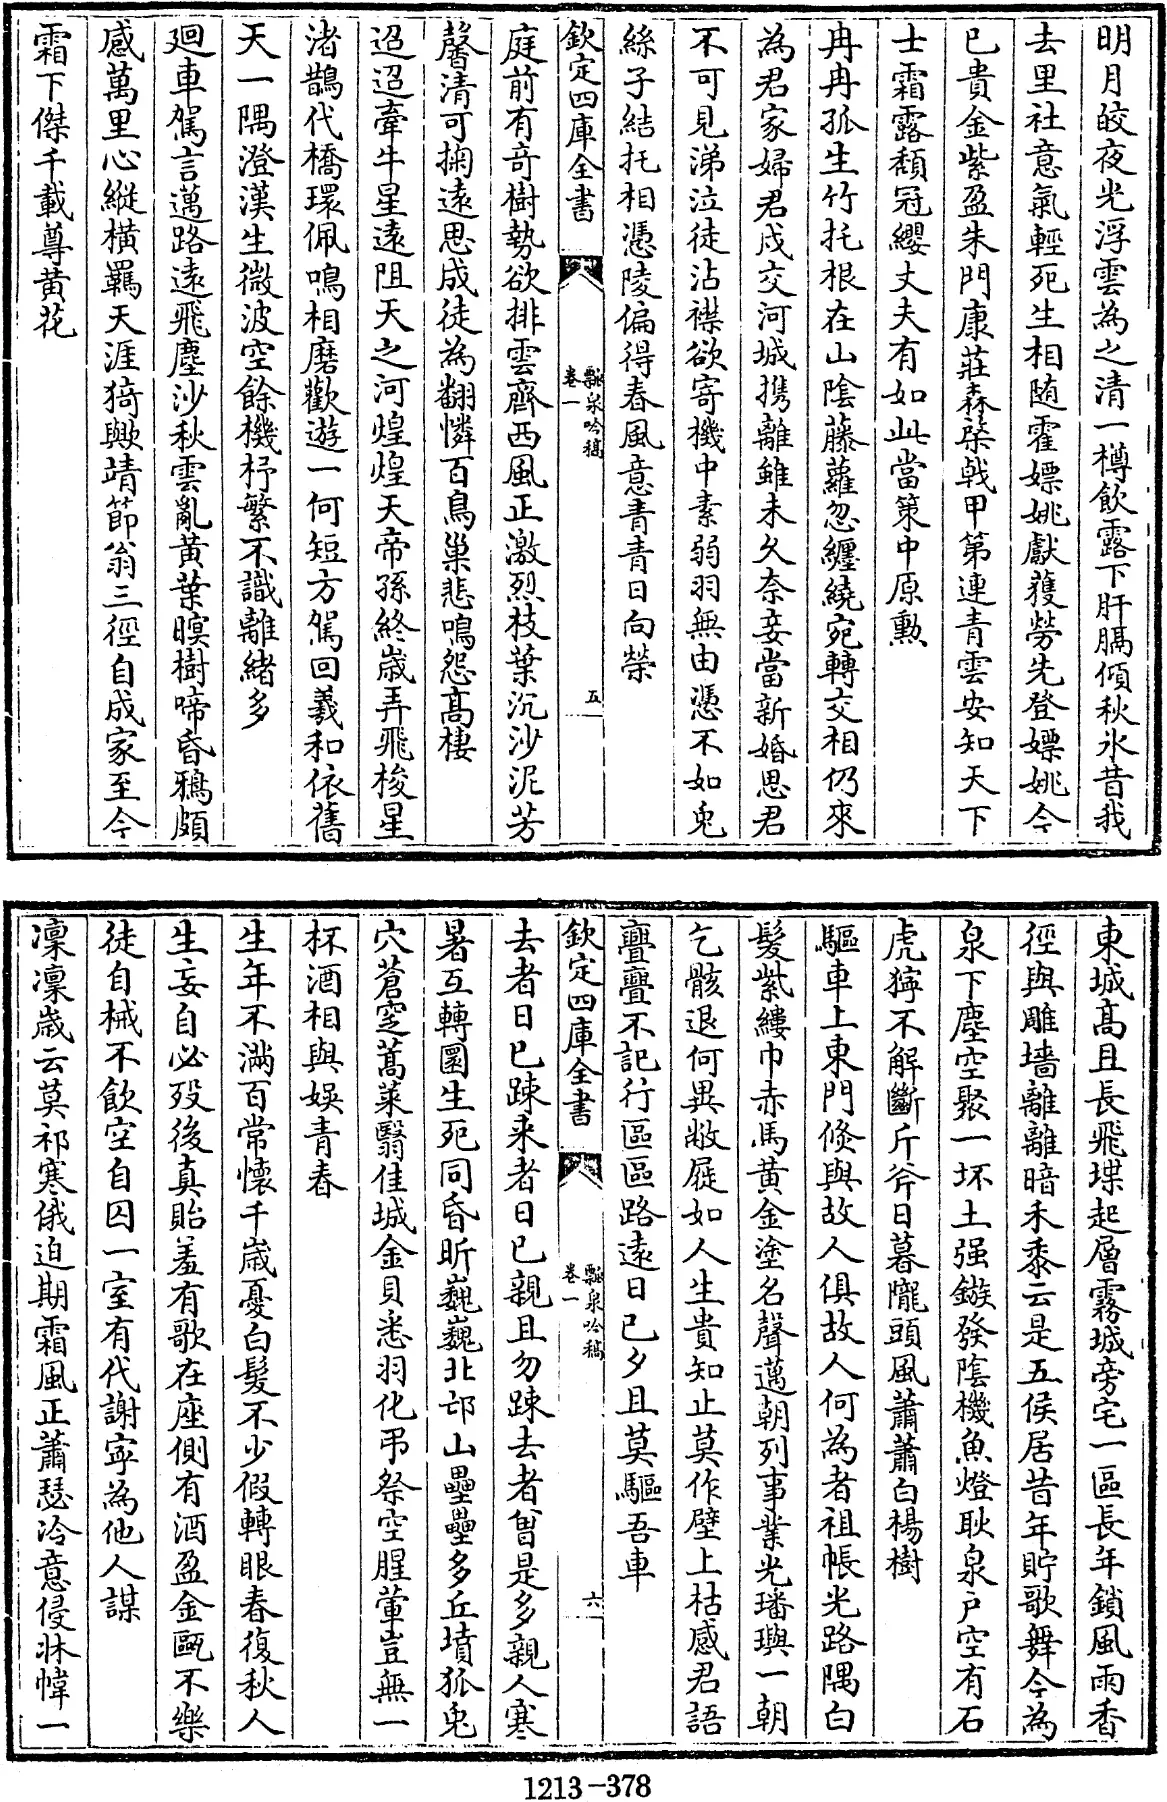 明月皎夜光浮雲為之清一樽飲露下肝膈傾秋氷昔我
去里社意氣輕死生相随霍嫖姚獻䕶勞先登嫖姚今
已貴金紫盈朱門康莊森棨㦸甲第連青雲安知天下
士霜露頽冠纓丈夫有如此當策中原勲
冉冉孤生竹托根在山陰藤蘿忽纏繞宛轉交相仍來
為君家婦君戍交河城携離雖未久奈妾當新婚思君
不可見涕泣徒沾襟欲寄機中素弱羽無由憑不如兎
絲子結托相憑陵偏得春風意青青日向榮
欽定四庫全書
瓢泉吟稿
卷一
五
庭前有竒樹勢欲排雲齊西風正激烈枝葉沉沙泥芳
馨清可掬遠思成徒為翻憐百鳥巢悲鳴怨髙棲
迢迢牽牛星遠阻天之河煌煌天帝孫終歳弄飛梭星
渚鵲代橋環佩鳴相磨歡遊一何短方駕回羲和依舊
天一隅澄漢生微波空餘機杼繁不識離緒多
廻車駕言邁路遠飛塵沙秋雲亂黄葉暝樹啼昏鴉頗
感萬里心縱横羈天涯猗歟靖節翁三徑自成家至今
霜下傑千載尊黄花
東城髙且長飛堞起層霧城旁宅一區長年鎖風雨香
徑與雕墻離離暗禾黍云是五侯居昔年貯歌舞今為
泉下塵空聚一坏土强鏃發陰機魚燈耿泉户空有石
虎獰不解斷斤斧日暮隴頭風蕭蕭白楊樹
驅車上東門倐與故人俱故人何為者祖帳光路隅白
髮紫縷巾赤馬黄金塗名聲邁朝列事業光璠璵一朝
乞骸退何異敝屣如人生貴知止莫作壁上枯感君語
亹亹不記行區區路遠日已夕且莫驅吾車
欽定四庫全書
瓢泉吟稿
卷一
六
去者日已踈来者日已親且勿踈去者曾是多親人寒
暑互轉圜生死同昏昕巍巍北邙山壘壘多丘墳狐兎
穴蒼窆蒿萊翳佳城金貝悉羽化弔祭空腥葷豈無一
杯酒相與娱青春
生年不滿百常懷千歳憂白髮不少假轉眼春復秋人
生妄自必歿後真貽羞有歌在座側有酒盈金甌不樂
徒自械不飲空自囚一室有代謝寧為他人謀
凜凜歳云莫祁寒俄迫期霜風正蕭瑟冷意侵牀幃一
1213-378